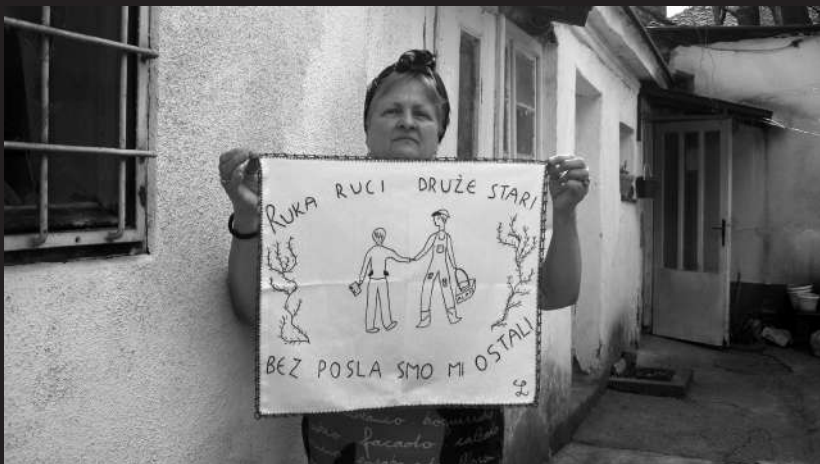 RUKA RUCI DRUŽE STARI
BEZ POSLA SMO MI OSTALI
Ł
facaoto